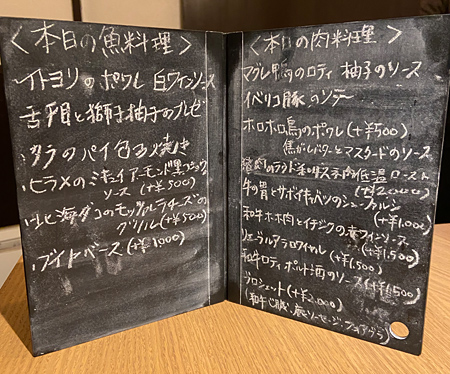 <本日の魚料理>
イトヨリのポワレ 白ワインソース
舌平目と獅子柚子のブレゼ
タラのパイ包み焼き
ヒラメのミキュイアーモンド黒コショウ
ソース (+¥500)
北海ダコのモッツァレラチーズの
グリル (+¥500)
ブイヤベース (+¥1000)
<本日の肉料理>
マグレ鴨のロティ 柚子のソース
イベリコ豚のソテー
ホロホロ鳥のポワレ (+¥500)
焦がしバターとマスタードのソース
低温ロースト
(+¥2000)
牛の胃とサボイキャベツのシューファルシ
(+¥1.000)
和牛ホホ肉とイチジクの赤ワインソース
リエーヴルアラロワイヤル (+¥1.500)
(+¥1.500)
和牛ロティ ポルト酒のソース (+¥1.500)
ブロシェット (+¥2.000)
(和牛、鹿ソーセージ、フォアグラ)